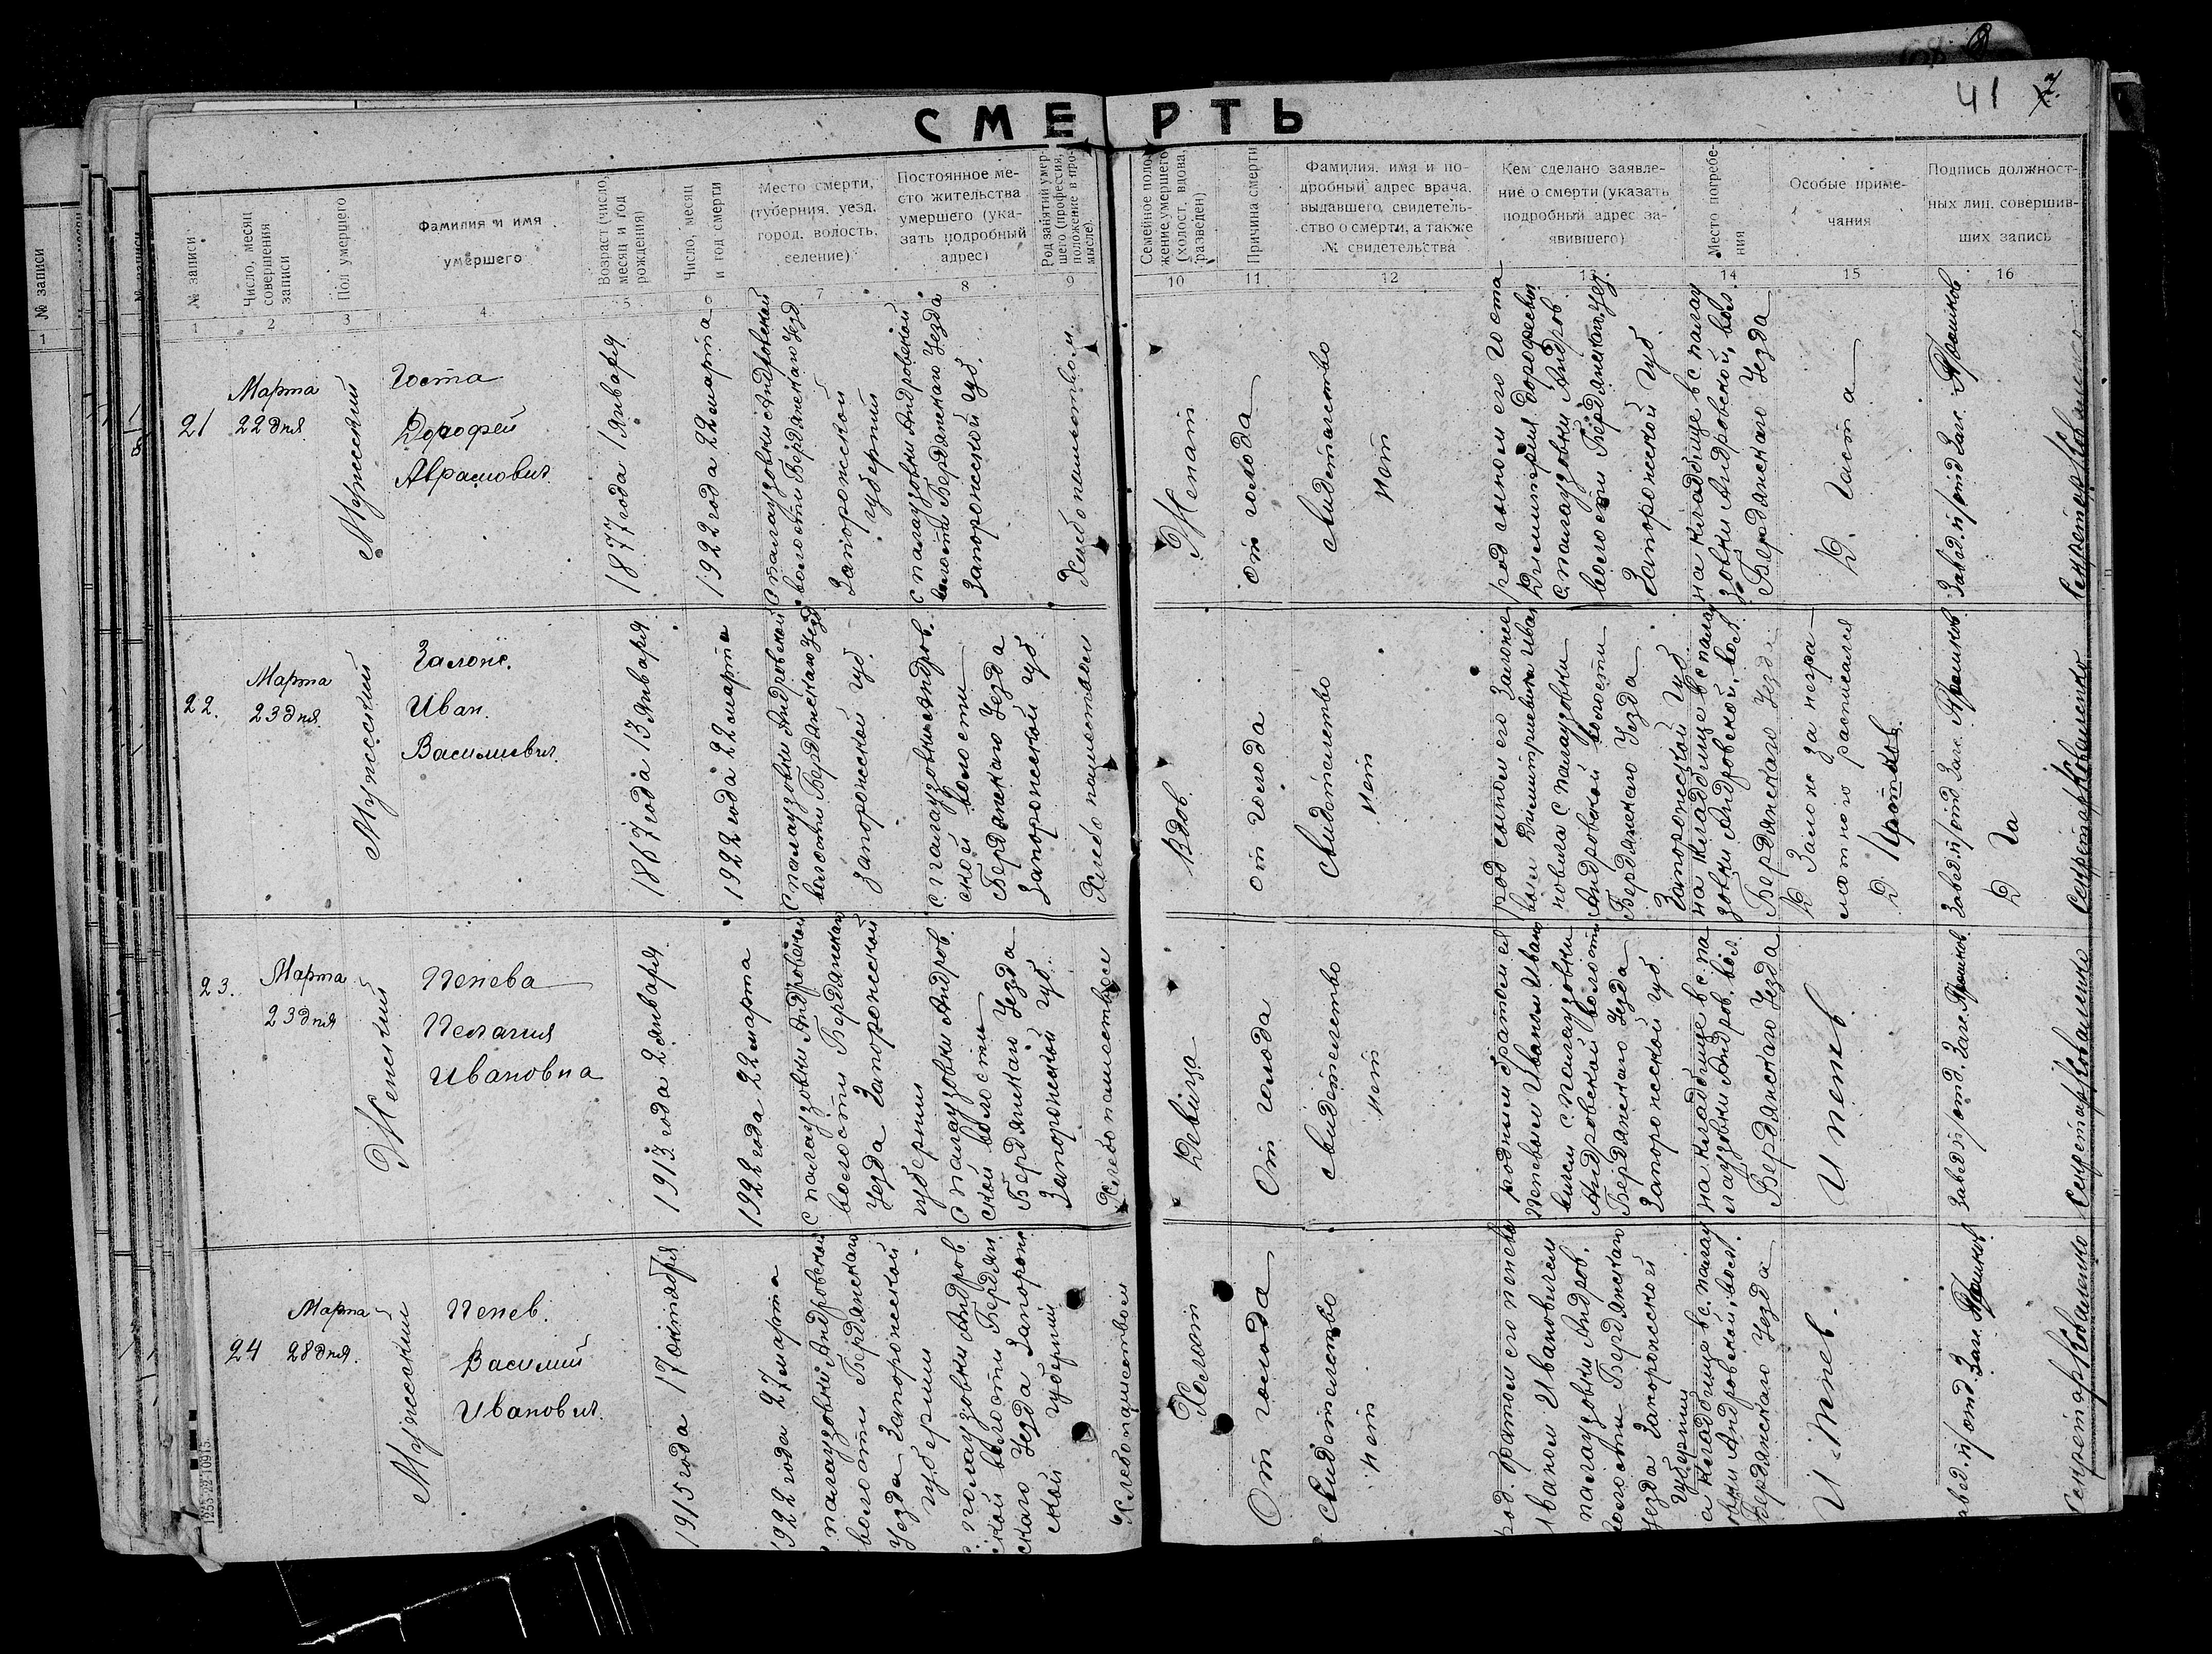 41
СМЕРТЬ
№ записи
1
№ записи
Число, месяц
совершения
записи
Пол умершего
Фамилия и имя
умершего
Возраст (число,
месяц и год
рождения)
Число, месяц
и год смерти
Место смерти,
(губерния, уезд,
город, волость,
селение)
Постоянное ме-
сто жительства
умершего (ука-
зать подробный
адрес)
Род занятий умер-
шего (профессия,
положение в про-
мысле).
Семейное поло-
жение умершего
(холост, вдова,
разведен)
Причина смерти
Фамилия, имя и по-
дробный адрес врача,
выдавшего, свидетель-
ство о смерти, а также
№ свидетельства
Кем сделано заявле-
ние о смерти (указать
подробный адрес за-
явившего)
Место погребе-
ния
Особые приме-
чания
Подпись должност-
ных лиц, совершив-
ших запись
1 2 3 4 5 6 7 8 9 10 11 12 13 14 15 16
21
Марта
22 дня.
Мужеский
Госта
Дорофей
Аврамович.
1877 года 1 января
1922 года 22 марта
с палаузовки Андровской
волости Бердянскаго Уезд
Запорожской
губернии
с палаузовки Андровской
волости Бердянскаго Уезда
Запорожской губ.
Хлебопашеством
Женат
от голода
свидетелство
нет
род сыном его Госта
Дмитрия Дорофеевич
с. палаузовки Андров
волости Бердянскаго Уез.
Запорожской Губ.
на кладбище в с. палау
зовки Андровской, вол.
Бердянскаго Уезда
Д. Гаста
Завед. п/отд Заг.
Секретарь Коваленко
22.
Марта
23 дня.
Мужеский
Залож.
Иван.
Василиевич.
1867 года 13 января
1922 года 22 марта
с палаузовки Андровской
волости Бердянскаго Уезд
Запорожской губ.
с палаузовки Андров.
ской волости
Бердянскаго Уезда
Запорожской губ
Хлебопашеством
Вдов.
от голода
свидетелство
нет
род сыном его Заложе
вым Дмитриевич Иван
новича с палаузовки
Андровской волости
Бердянскаго Уезда
Запорожской Губ.
на кладбище в с палау
зовки Андровской, вол.
Бердянскаго Уезда
Д Залож за негра
мотного расписался
Завед. п/отд Заг.
Д Га
Секретарь Коваленко
23.
Марта
23 дня
Женский
Пенева
Пелагия
Ивановна
1913 года 2 января
1922 года 22 марта
с палаузовки Андровской
волости Бердянскаго
Уезда Запорожской
губернии
с палаузовки Андров.
ской волости
Бердянскаго Уезда
Запорожской губ.
Хлебопашеством
Девица
От голода
свидетелство
нет
родным братом ея
Пеневым Иваном Ивано
вичем с палаузовки
Андровской волости
Бердянскаго Уезда
Запорожской губ.
на кладбище в с. па
лаузовки Андров. вол
Бердянскаго Уезда
И пенев
Завед п/отд. Заг.
Секретарь Коваленко
24
Марта
28 дня.
Мужеский
Пенев.
Василий
Иванович.
1915 года 17 октября
1922 года 27 марта
с палаузовки Андровской
волости Бердянскаго
Уезда Запорожской
губернии
с. палаузовки Андров
ской волости Бердян
скаго Уезда Запорож
ской губернии
Хлебопашеством
Холост
От голода
свидетелство
нет
род. братом его пенев
Иваном Ивановичем
палаузовки Андров.
волости Бердянскаго
Уезда Запорожской
Губернии
на кладбище в с. палау
зовки Андровской, вол.
Бердянскаго Уезда
И. Пенев.
Завед. п/отд. Заг.
Секретарь Коваленко
1253-22-10915.